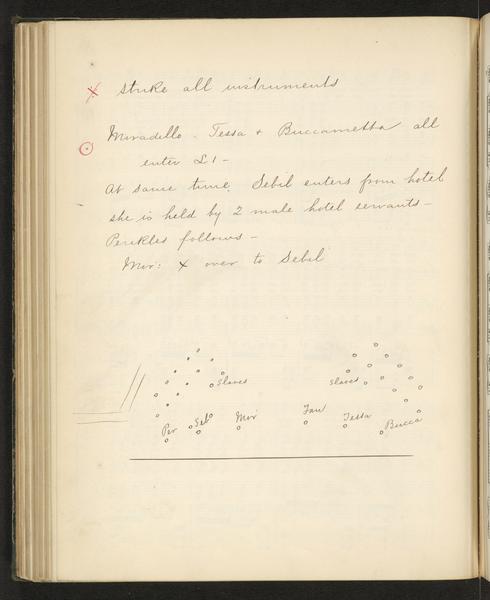 x strike all instruments
Miradillo - Tessa + Buccametta all
enter L1 -
At same time, Sebil enters from hotel
she is held by 2 male hotel servants -
Perikles follows -
Mir: x over to Sebil
Slaves
Slaves
Per Seb Mir Fan Tessa Bucca